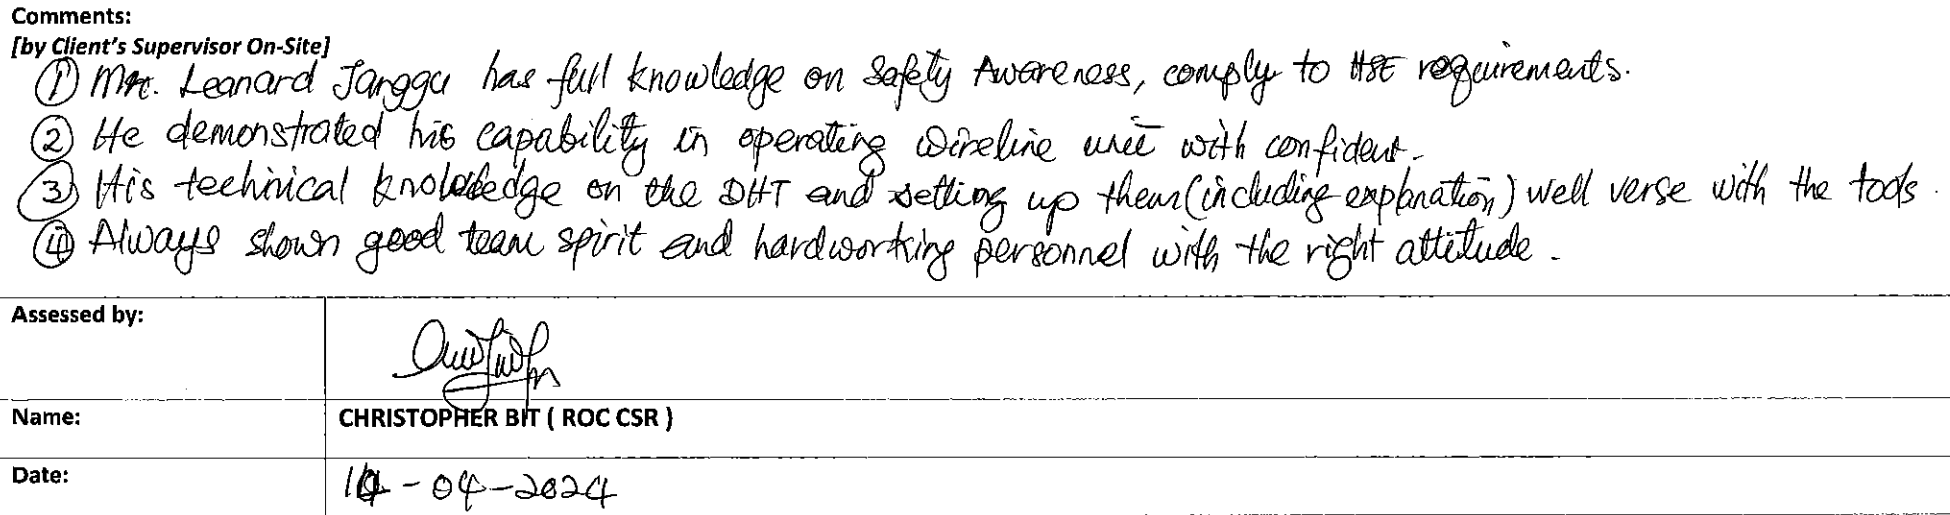 Comments:
[by Client's Supervisor On-Site]
① Mr. Leanard Janggu has full knowledge on Safety Awareness, comply to HSE requirements.
② He demonstrated his capability in operating wireline unit with confident.
③ His technical knowledge on the DHT and setting up them (including explanation) well verse with the tools.
④ Always shown good team spirit and hardworking personnel with the right attitude.
Assessed by:
Name: CHRISTOPHER BIT ( ROC CSR )
Date: -04-2024